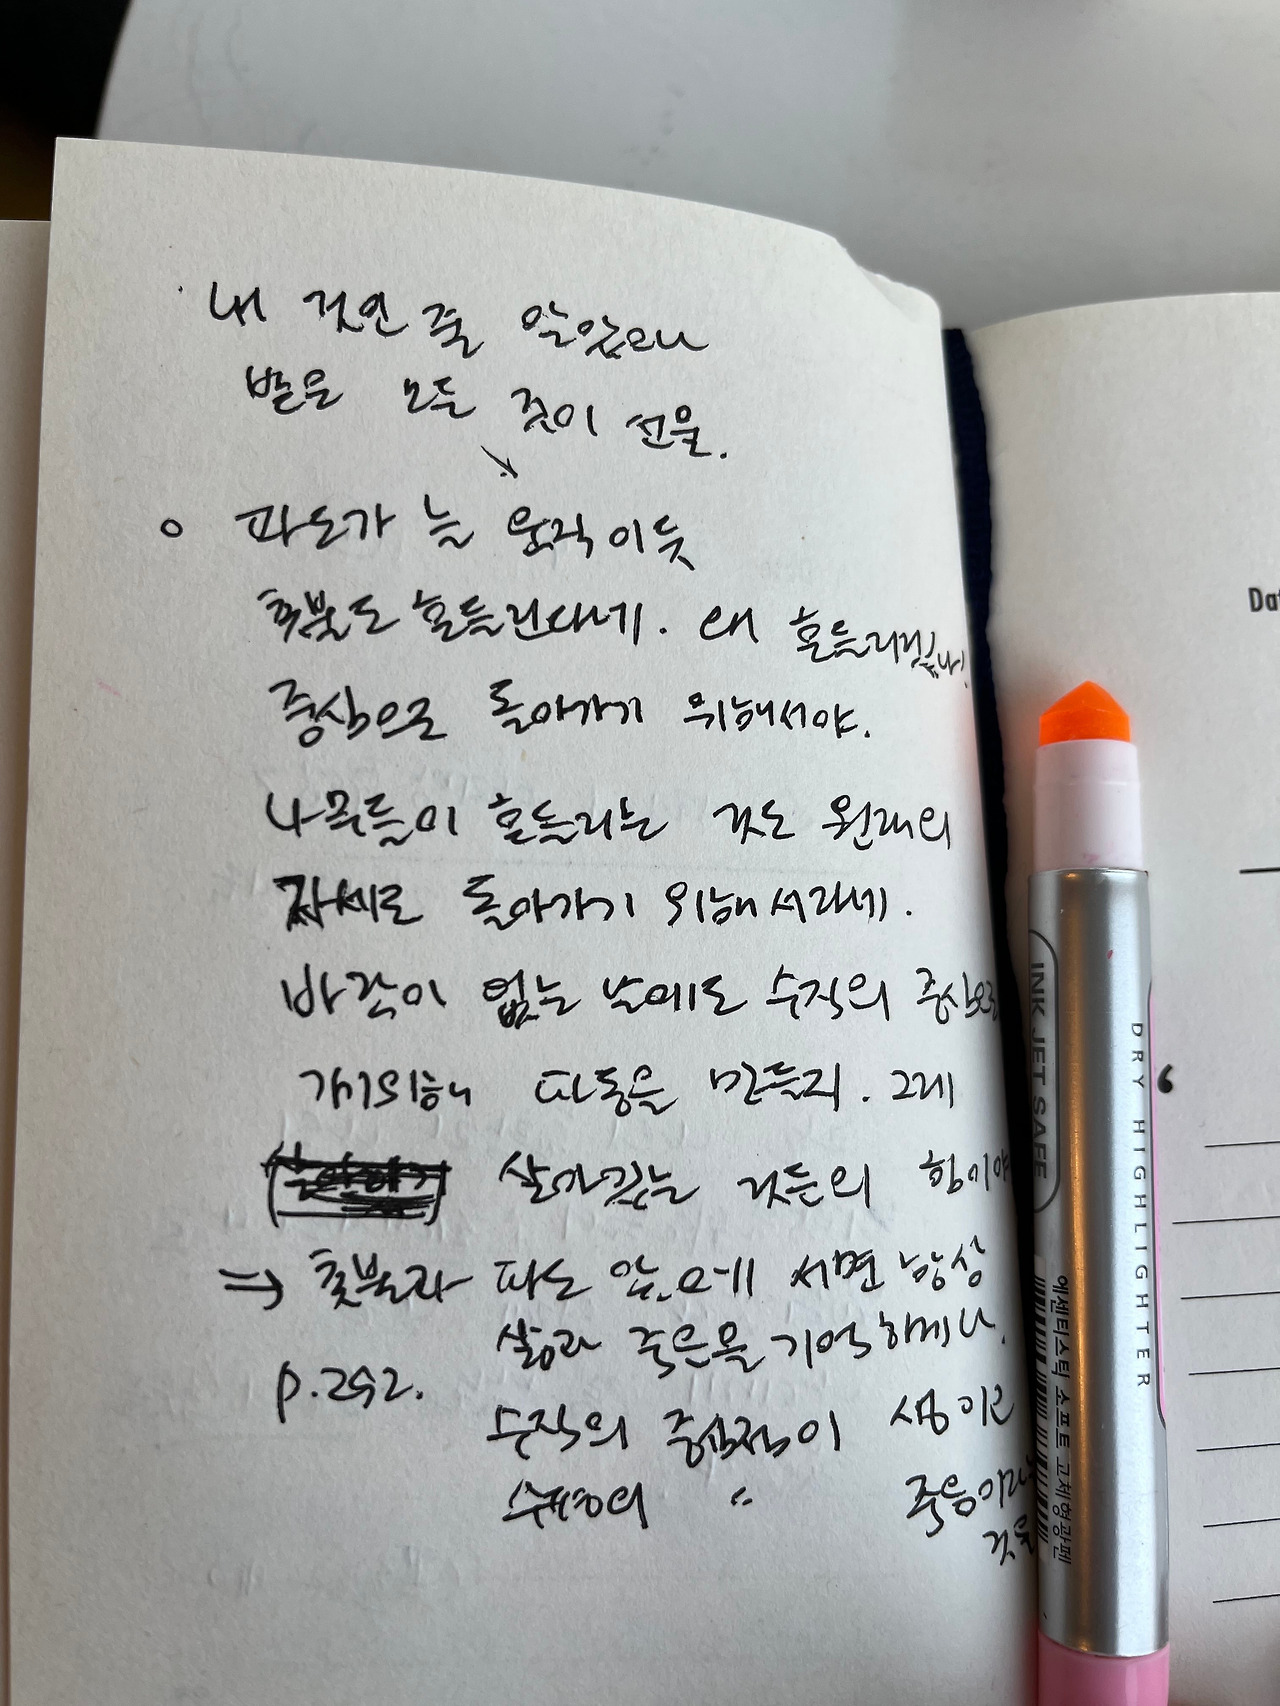 · 내 것인 줄 알았으나
받은 모든 것이 선물.
○ 파도가 늘 움직이듯
촛불도 흔들린다네. 왜 흔들리겠나?
중심으로 돌아가기 위해서야.
나뭇들이 흔들리는 것도 원래의
자세로 돌아가기 위해서라네.
바람이 없는 날에도 수직의 중심으로
가기위해 파동을 만들지. 그게
살아있는 것들의 힘이야
⇒ 촛불과 파도 앞에 서면 항상
삶과 죽음을 기억하게나.
p.292.
수직의 중심점이 생이고
수평의 〃 죽음이라는
것을
Dat
INK JET SAFE
DRY HIGHLIGHTER
에센티스틱 소프트 고체형광펜